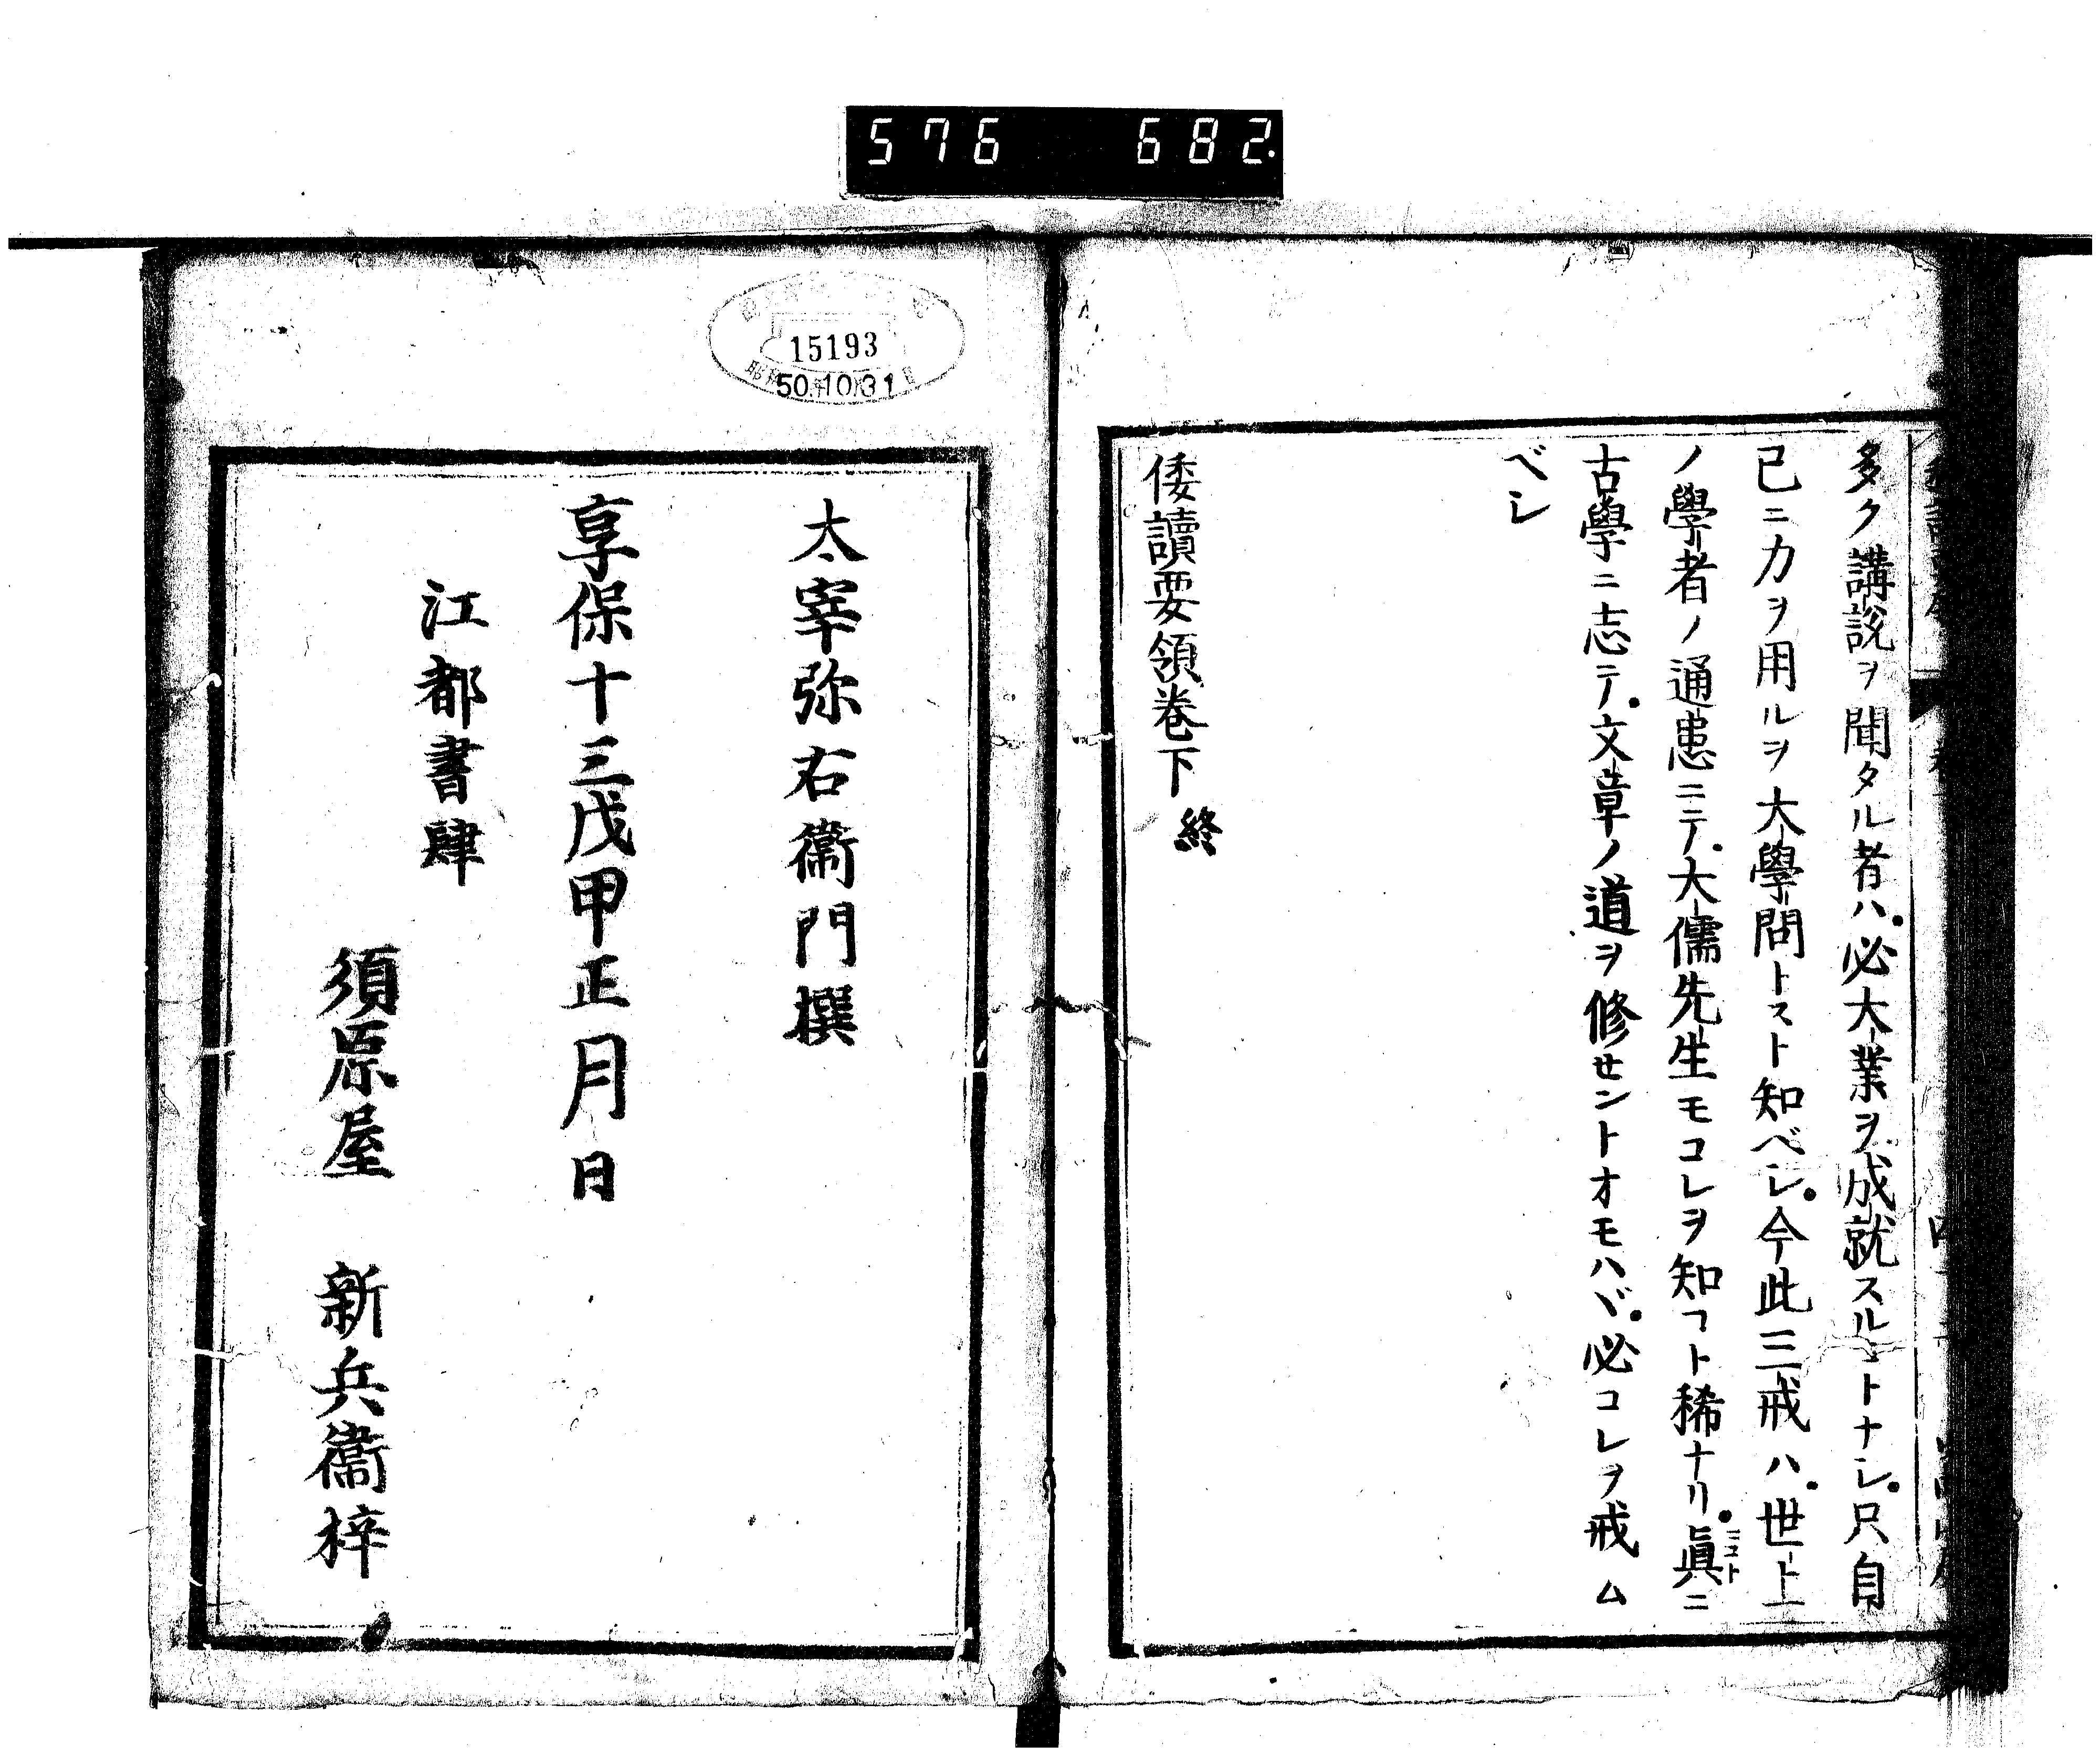 576 682.
多ク講説ヲ聞タル者ハ必大業ヲ成就スルコトナシ只自
己ニ力ヲ用ルヲ大學問トスト知ベシ今此三戒ハ世上
ノ學者ノ通患ニテ大儒先生モコレヲ知コト稀ナリ眞ニ
古學ニ志テ文章ノ道ヲ修セントオモハヾ必コレヲ戒ム
ベシ
倭讀要領卷下 終
15193
50.10.31
太宰弥右衞門撰
享保十三戊申正月日
江都書肆
須原屋 新兵衞梓